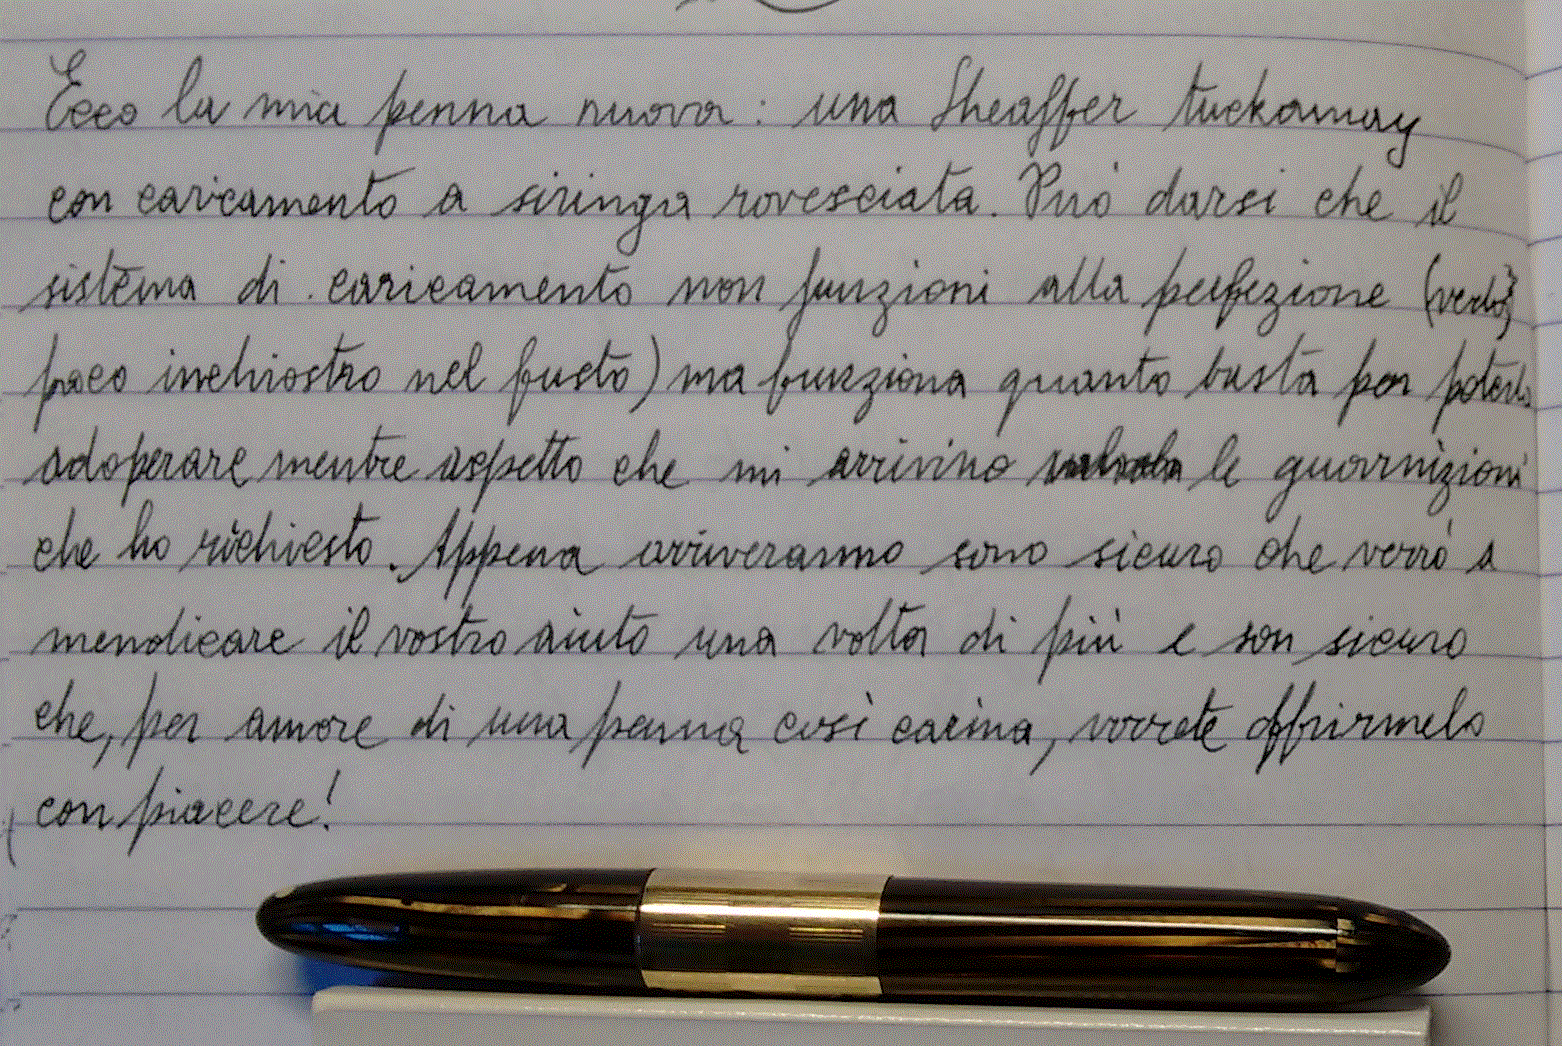 Ecco la mia penna nuova: una Sheaffer tuckaway
con caricamento a siringa rovesciata. Può darsi che il
sistema di caricamento non funzioni alla perfezione (vedo
poco inchiostro nel fusto) ma funziona quanto basta per poterla
adoperare mentre aspetto che mi arrivino le guarnizioni
che ho richiesto. Appena arriveranno sono sicuro che verrò a
mendicare il vostro aiuto una volta di più e son sicuro
che, per amore di una penna così carina, vorrete offrirmelo
con piacere!